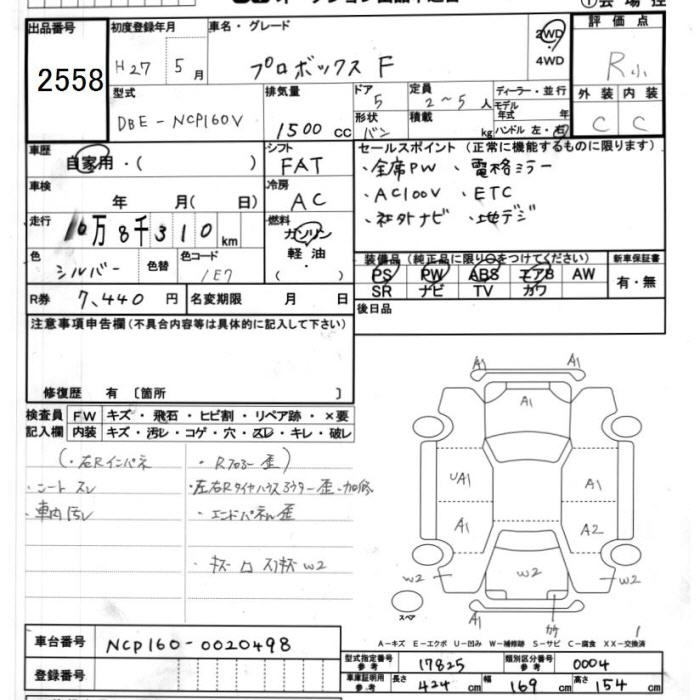 出品番号
2558
初度登録年月
H27 5月
車名・グレード
プロボックス F
2WD
4WD
評価点
R小
外装 内装
C C
型式
DBE-NCP160V
排気量
1500 cc
ドア
5
形状
バン
定員
2～5 人
積載
kg
ディーラー・並行
モデル年式 年
ハンドル 左・右
車歴
自家用・( )
シフト
FAT
セールスポイント (正常に機能するものに限ります)
・全席PW ・電格ミラー
・AC100V ・ETC
・社外ナビ ・地デジ
車検
年 月( 日)
冷房
AC
走行
10万8千310 km
燃料
ガソリン
軽油
( )
色
シルバー
色替
色コード
1E7
装備品 (純正品に限り○をつけてください)
PS PW ABS エアB AW
SR ナビ TV カワ
新車保証書
有・無
R券 7,440 円
名変期限 月 日
後日品
注意事項申告欄(不具合内容等は具体的に記入して下さい)
修復歴 有 〔箇所 〕
検査員記入欄
FW キズ・飛石・ヒビ割・リペア跡・×要
内装 キズ・汚レ・コゲ・穴・スレ・キレ・破レ
(・右Rインパネ ・Rフロアー歪)
・シートスレ
・車内汚レ
・エンドパネル歪
A1 A1
A1
UA1 A1
A1 A2
W2 W2 W2
スペア
A1 カケ A1
A-キズ E-エクボ U-凹み W-補修跡 S-サビ C-腐食 XX-交換済
車台番号
NCP160-0020498
登録番号
型式指定番号 参考
17825
類別区分番号 参考
0004
車庫証明用 参考
長さ 424 cm
幅 169 cm
高さ 154 cm